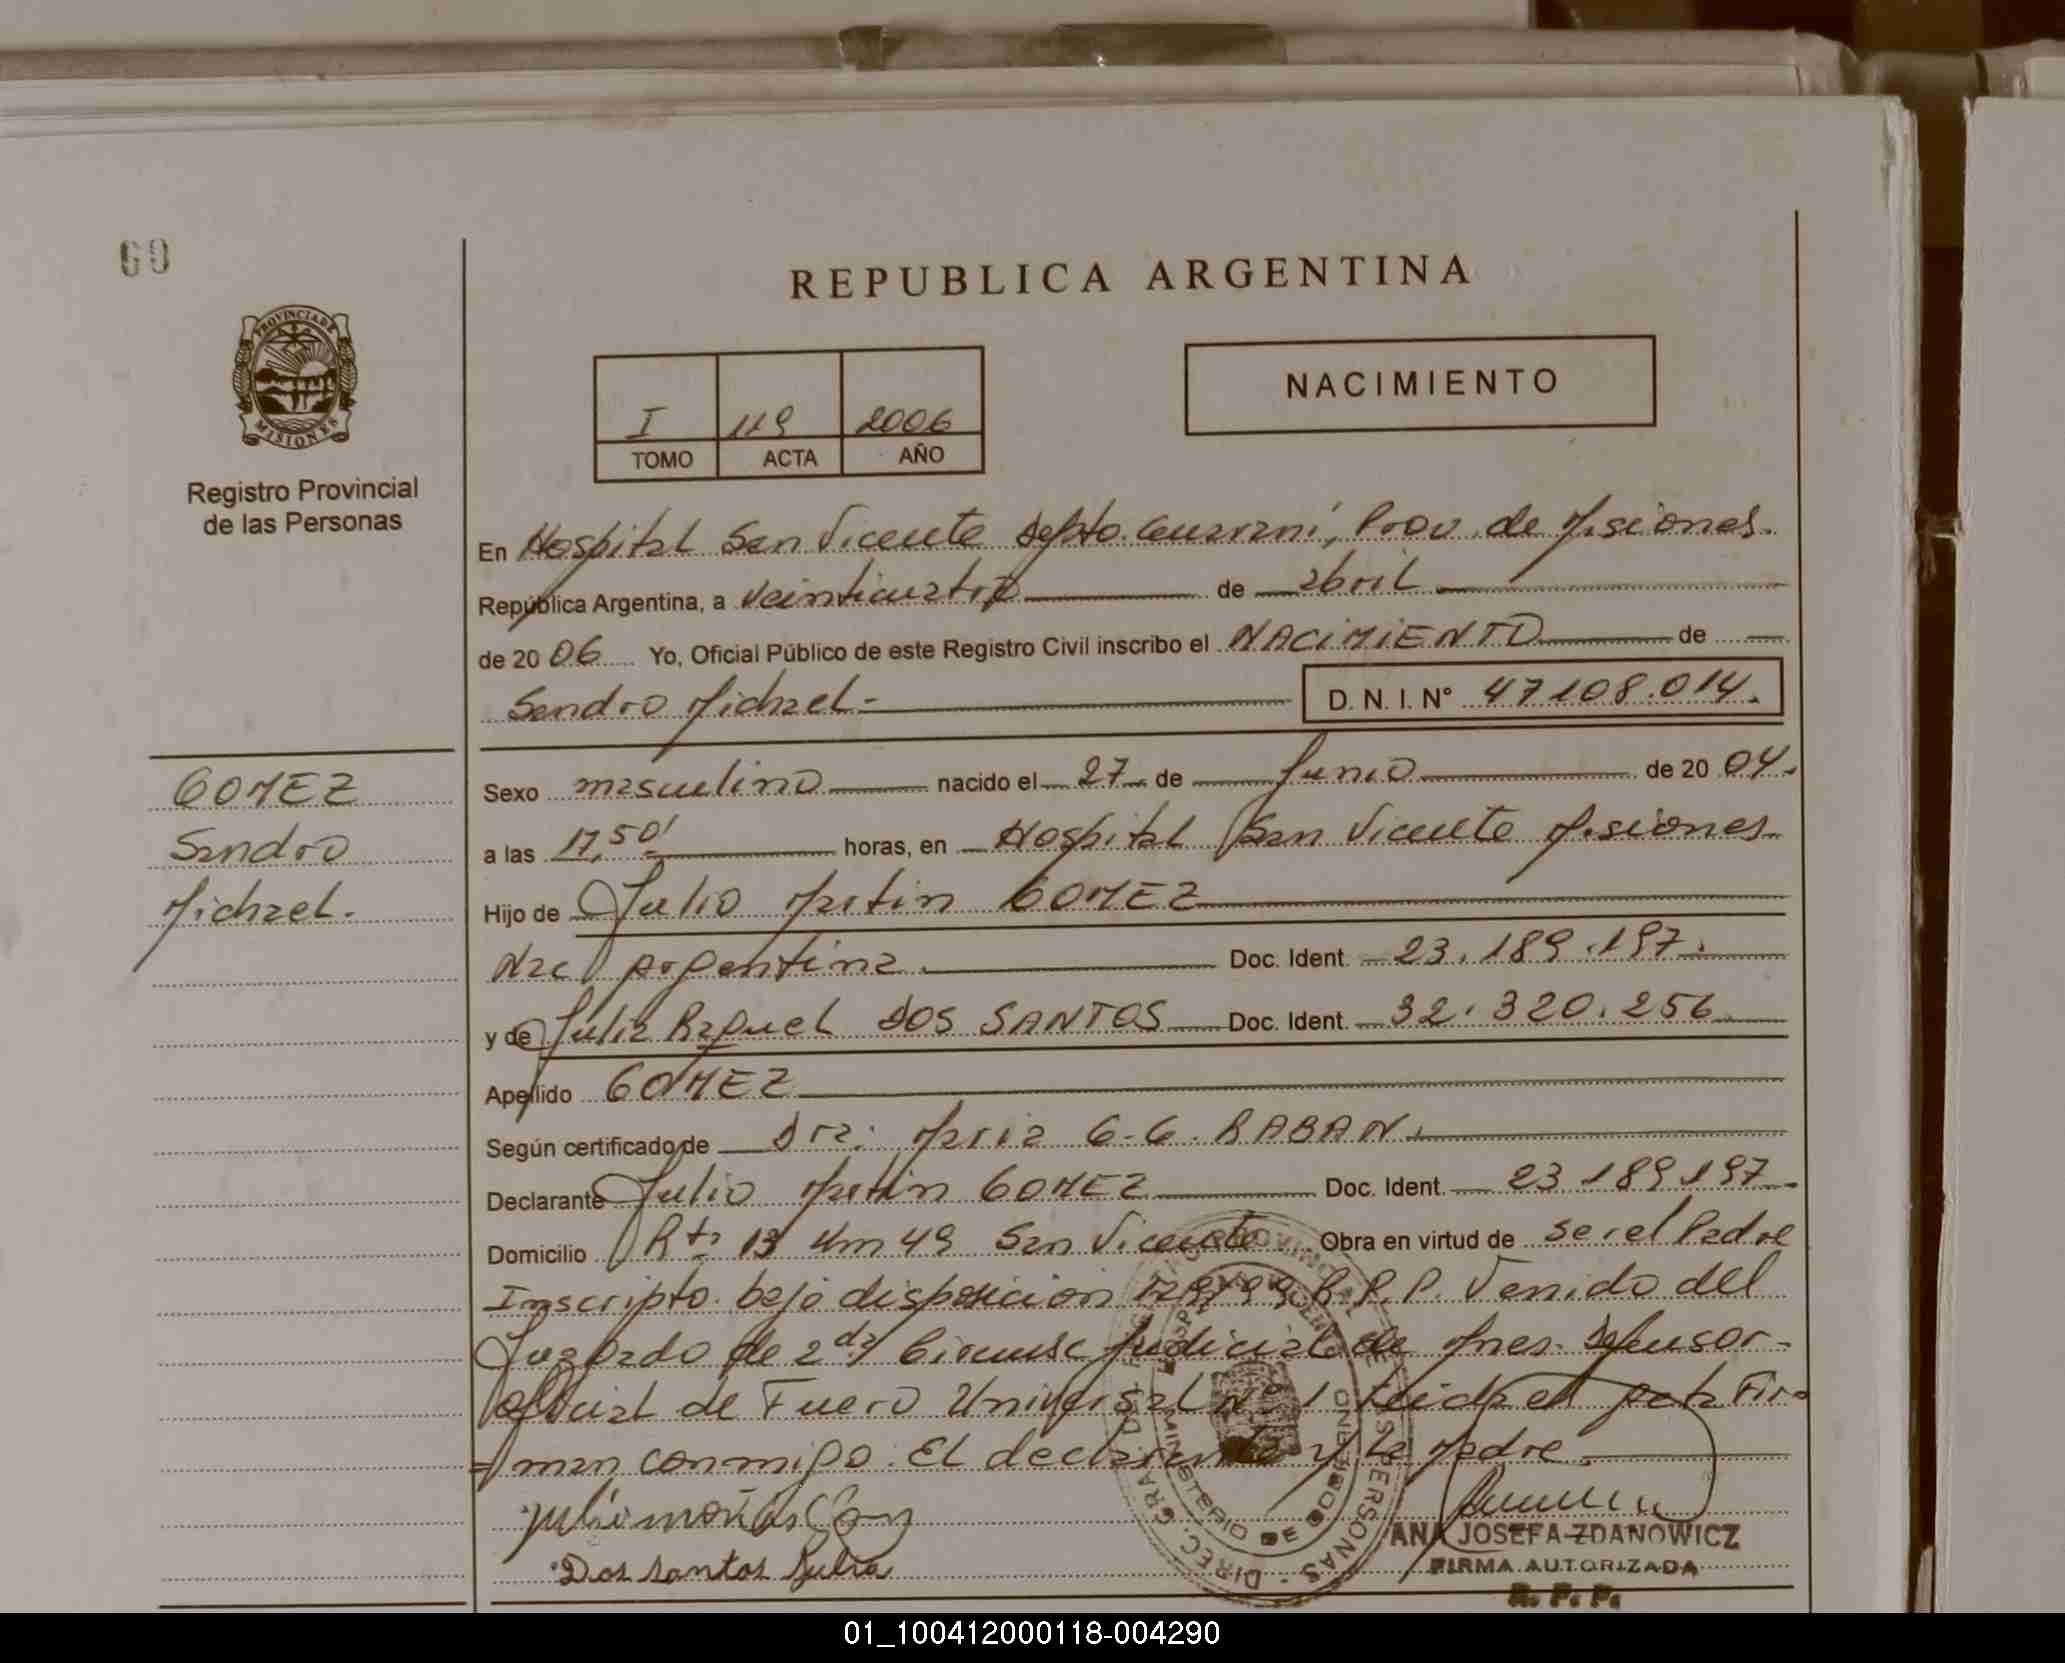 60
REPUBLICA ARGENTINA
PROVINCIA DE
MISIONES
Registro Provincial
de las Personas
NACIMIENTO
I 119 2006
TOMO ACTA AÑO
En Hospital San Vicente Depto. Guaraní, Prov. de Misiones.
República Argentina, a veinticuatro de abril
de 2006 Yo, Oficial Público de este Registro Civil inscribo el NACIMIENTO de
Sandro Michael.
D. N. I. N° 47108.014.
GOMEZ
Sandro
Michael.
Sexo masculino nacido el 27 de Junio de 2004.
a las 17,50' horas, en Hospital San Vicente Misiones
Hijo de Julio Martin GOMEZ
Nac Argentina. Doc. Ident. 23.189.197.
y de Julia Raquel DOS SANTOS Doc. Ident. 32.320.256
Apellido GOMEZ
Según certificado de Dra. Maria G. G. RABAN.
Declarante Julio Martin GOMEZ Doc. Ident. 23 189 197.
Domicilio Rta 13 Km 49 San Vicente Obra en virtud de ser el Padre
Inscripto bajo disposicion R.P.P. Venido del
Juzgado de 2da Circunsc Judicial de Mnes. Defensor
oficial de Fuero Universal Nº 1 Fir
=man conmigo. El declarante y la Madre.
Dos santos Julia
ANA JOSEFA ZDANOWICZ
FIRMA AUTORIZADA
R. P. P.
MINISTERIO DE GOBIERNO
01_100412000118-004290